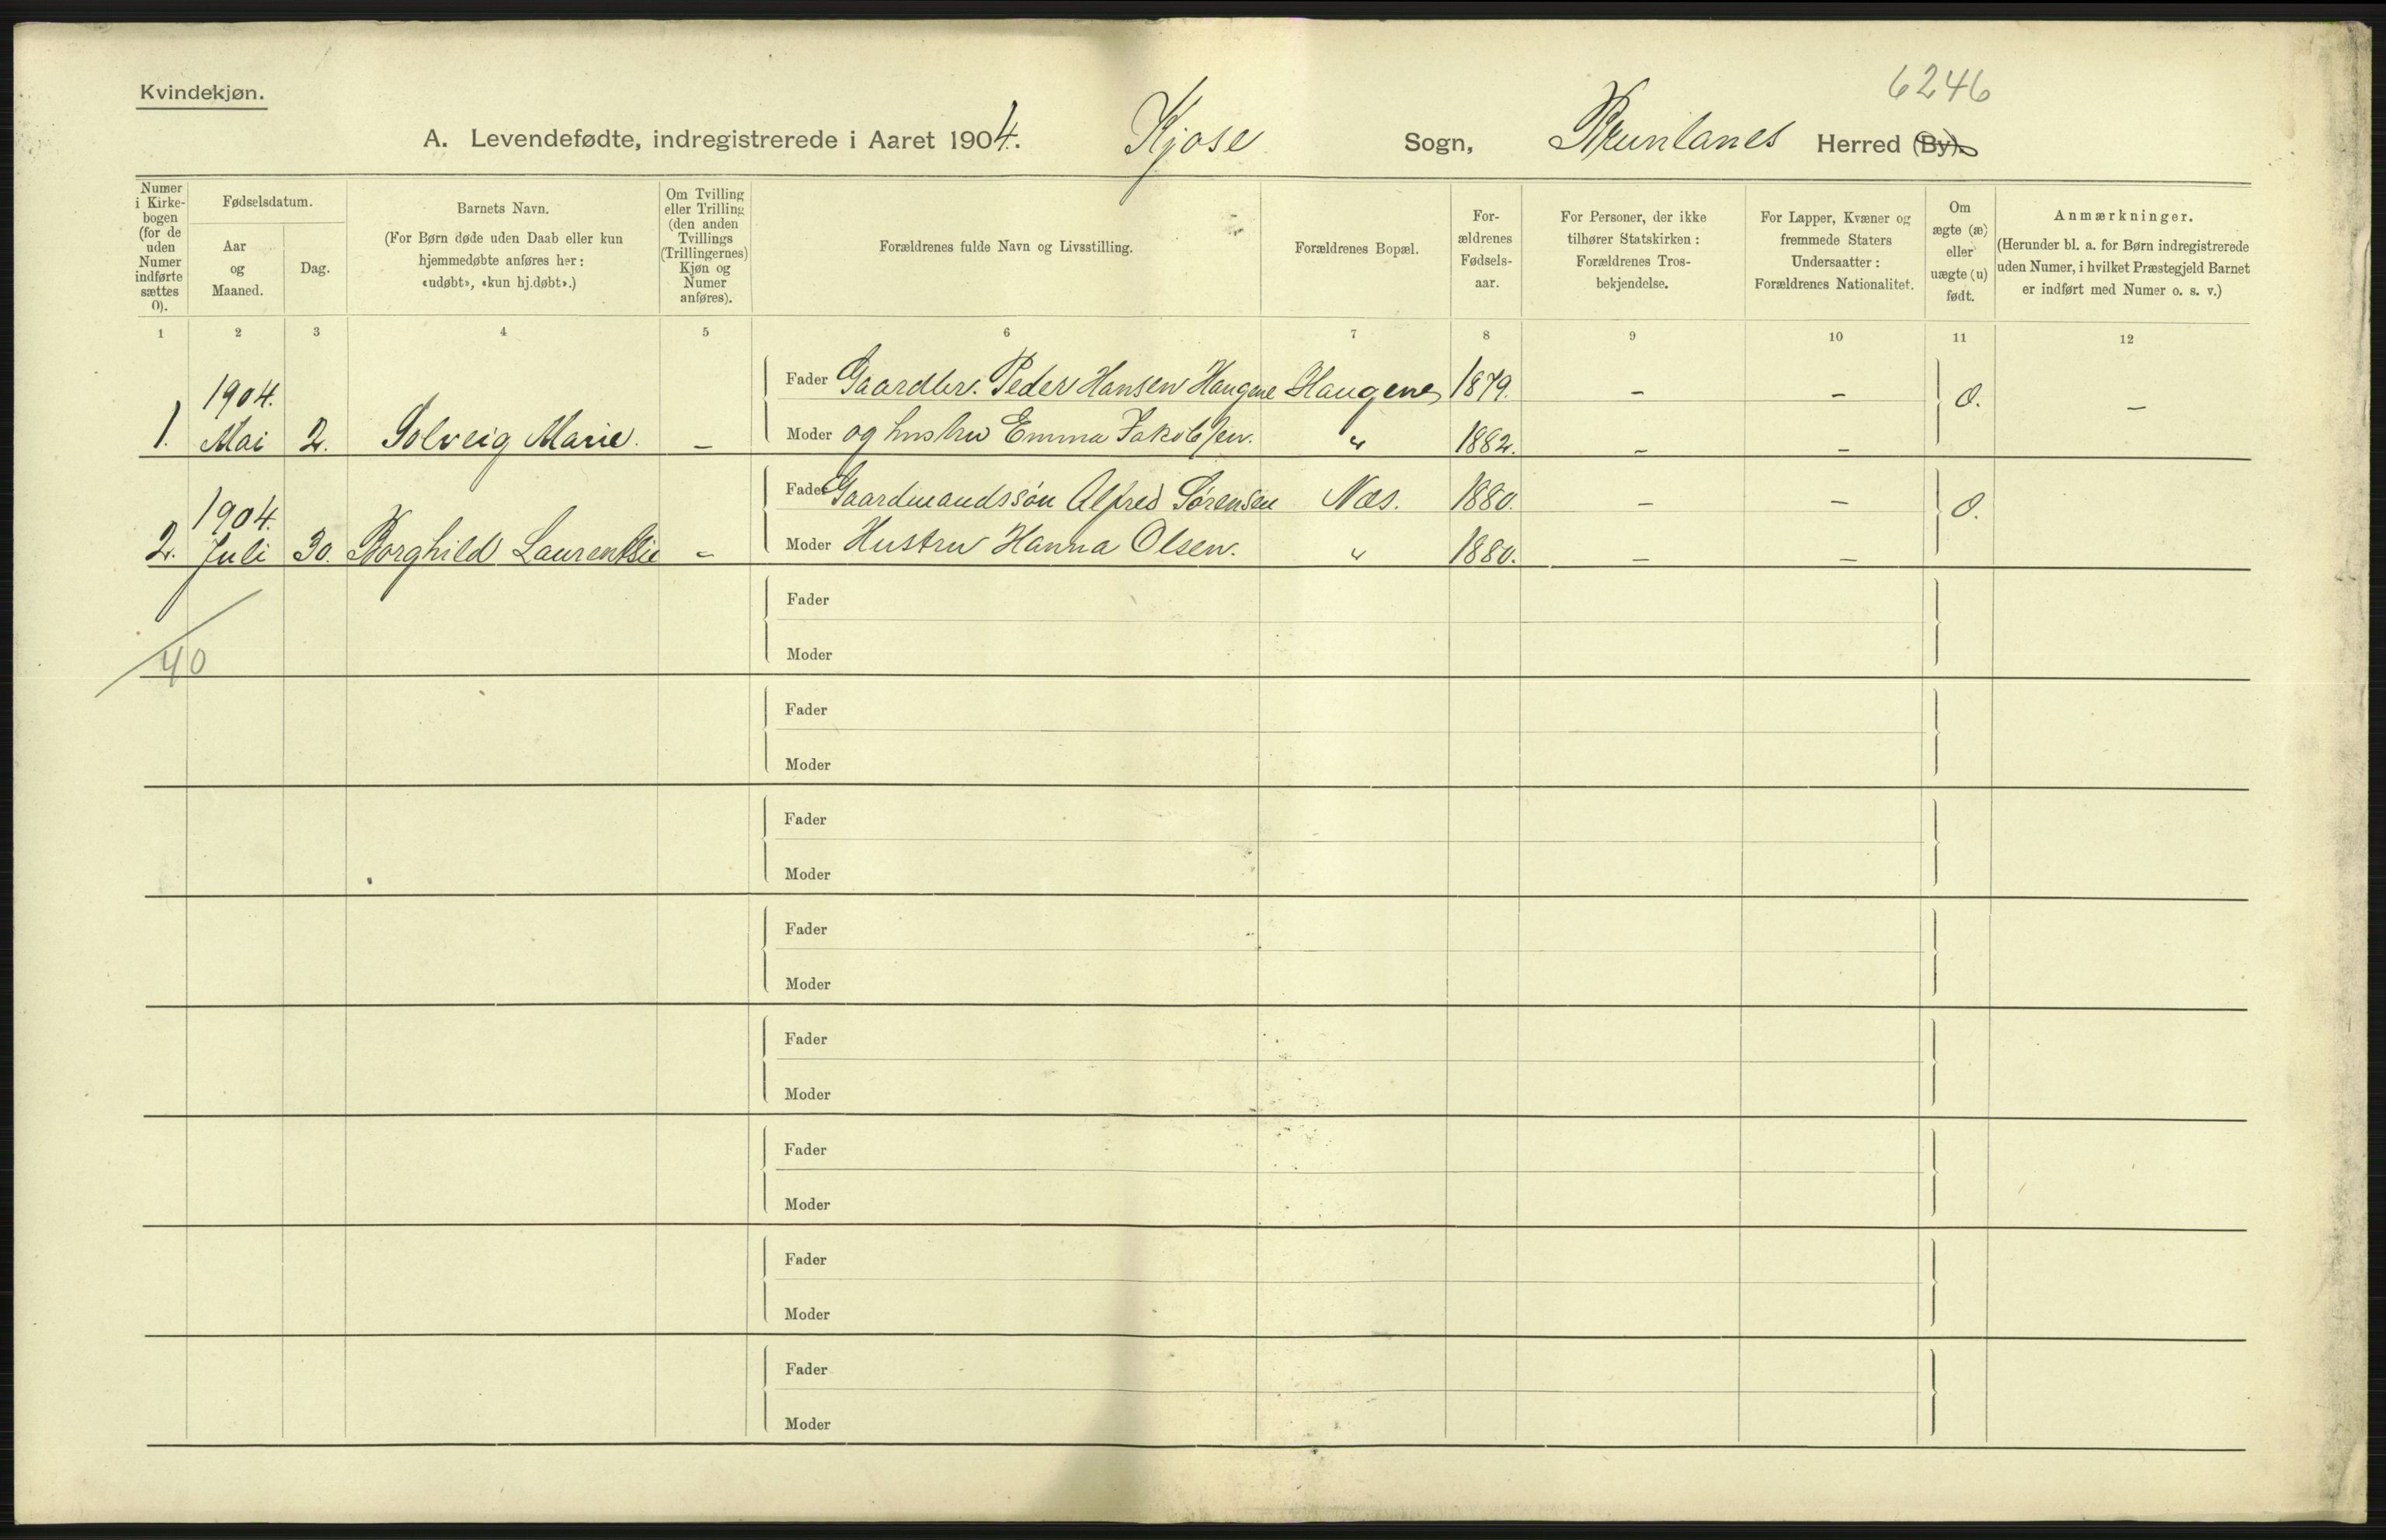 6246
Kvindekjøn.
A. Levendefødte, indregistrerede i Aaret 1904. Kjose Sogn, Brunlanes Herred (By).
Numer i Kirkebogen (for de uden Numer indførte sættes 0).
Fødselsdatum.
Aar og Maaned.
Dag.
Barnets Navn.
(For Børn døde uden Daab eller kun
hjemmedøbte anføres her:
«udøbt», «kun hj.døbt».)
Om Tvilling
eller Trilling
(den anden
Tvillings
(Trillingernes)
Kjøn og
Numer
anføres).
Forældrenes fulde Navn og Livsstilling.
Forældrenes Bopæl.
For-
ældrenes
Fødsels-
aar.
For Personer, der ikke
tilhører Statskirken:
Forældrenes Tros-
bekjendelse.
For Lapper, Kvæner og
fremmede Staters
Undersaatter:
Forældrenes Nationalitet.
Om
ægte (æ)
eller
uægte (u)
født.
Anmærkninger.
(Herunder bl. a. for Børn indregistrerede
uden Numer, i hvilket Præstegjeld Barnet
er indført med Numer o. s. v.)
1 2 3 4 5 6 7 8 9 10 11 12
1904.
Fader Gaardbr. Peder Hansen Haugene Haugene 1879. - -
1. Mai 2. Solveig Marie. - Moder og hustru Emma Jakobsen. " 1882. - - -
1904.
Fader Gaardmandssøn Alfred Sørensen Næs. 1880. - -
2. Juli 30. Borghild Laurentsie - Moder Hustru Hanna Olsen. " 1880. - -
Fader
40 Moder
Fader
Moder
Fader
Moder
Fader
Moder
Fader
Moder
Fader
Moder
Fader
Moder
Fader
Moder